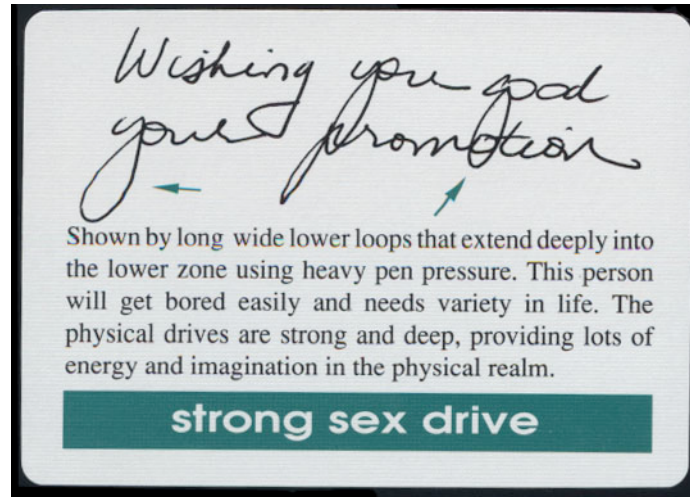 Wishing you good
your promotion
Shown by long wide lower loops that extend deeply into
the lower zone using heavy pen pressure. This person
will get bored easily and needs variety in life. The
physical drives are strong and deep, providing lots of
energy and imagination in the physical realm.
strong sex drive